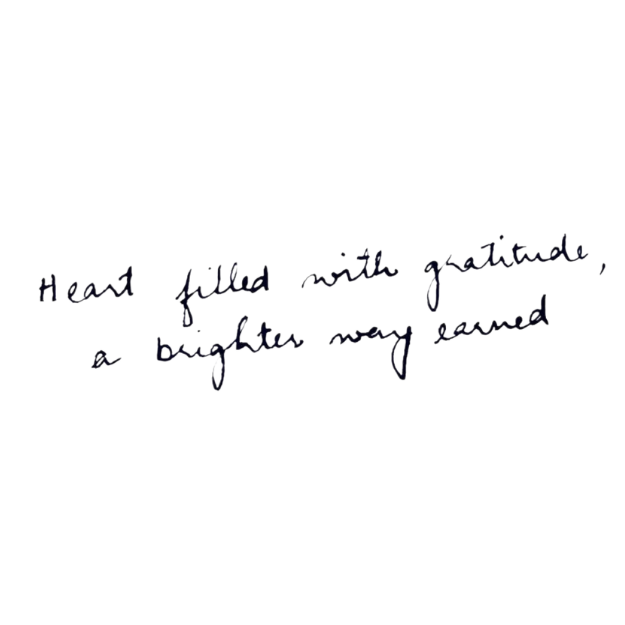 Heart filled with gratitude,
a brighter way earned